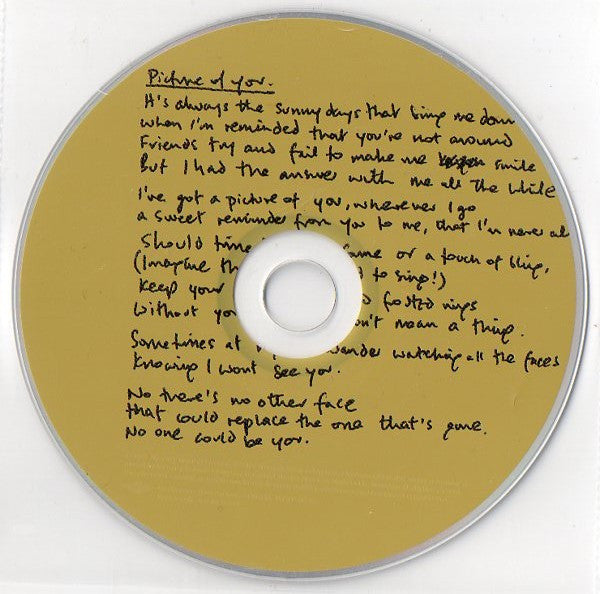 Picture of you.
It's always the sunny days that bring me down
when I'm reminded that you're not around
Friends try and fail to make me smile
But I had the answer with me all the while
I've got a picture of you, wherever I go
a sweet reminder from you to me, that I'm never al
Should time ame or a touch of bling,
(Imagine th d to sing!)
Keep your rings
Without yo n't mean a thing.
Sometimes at wander watching all the faces
Knowing I wont see you.
No there's no other face
that could replace the one that's gone.
No one could be you.